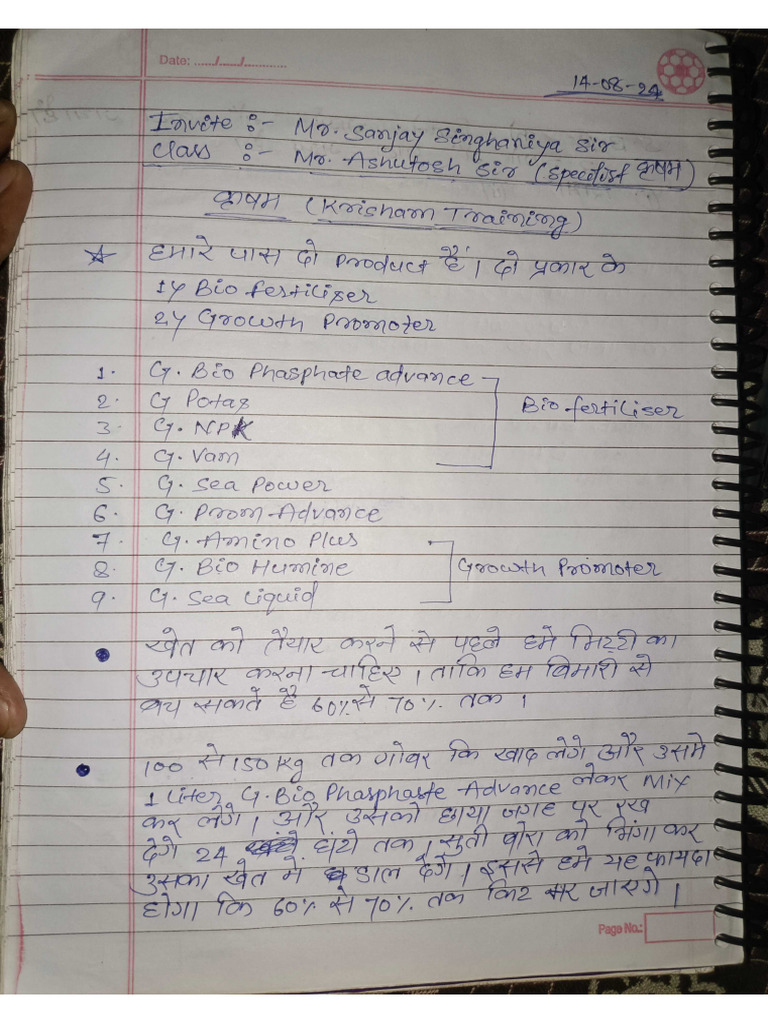 Date: ....../....../............
14-08-24
Invite :- Mr. Sanjay Singhaniya Sir
Class :- Mr. Ashutosh Sir (Specilist क्षषम)
(Krisham Training)
☆ हमारे पास दो Product हैं। दो प्रकार के
1y Bio fertiliser
2y Growth Promoter
1. G. Bio Phasphate advance
2. G Potas
Bio fertiliser
3. G. NPK
4. G. Vam
5. G. Sea Power
6. G. Prom-Advance
7. G. Amino Plus
8. G. Bio Humine
Growth Promoter
9. G. Sea Liquid
• खेत को तैयार करने से पहले हमे मिट्टी का
उपचार करना चाहिए। ताकि हम बिमारी से
बच सकते है 60% से 70% तक।
• 100 से 150 Kg तक गोबर कि खाद लेगे और उसमे
1 Liter G. Bio Phasphaste Advance लेकर Mix
कर लेगे। और उसको छाया जगह पर रख
देगे 24 घंटो तक। सुती बोरा को भिंगा कर
उसका खेत मे डाल देगें। इससे हमे यह फायदा
होगा कि 60% से 70% तक किट मर जाएगे।
Page No.: